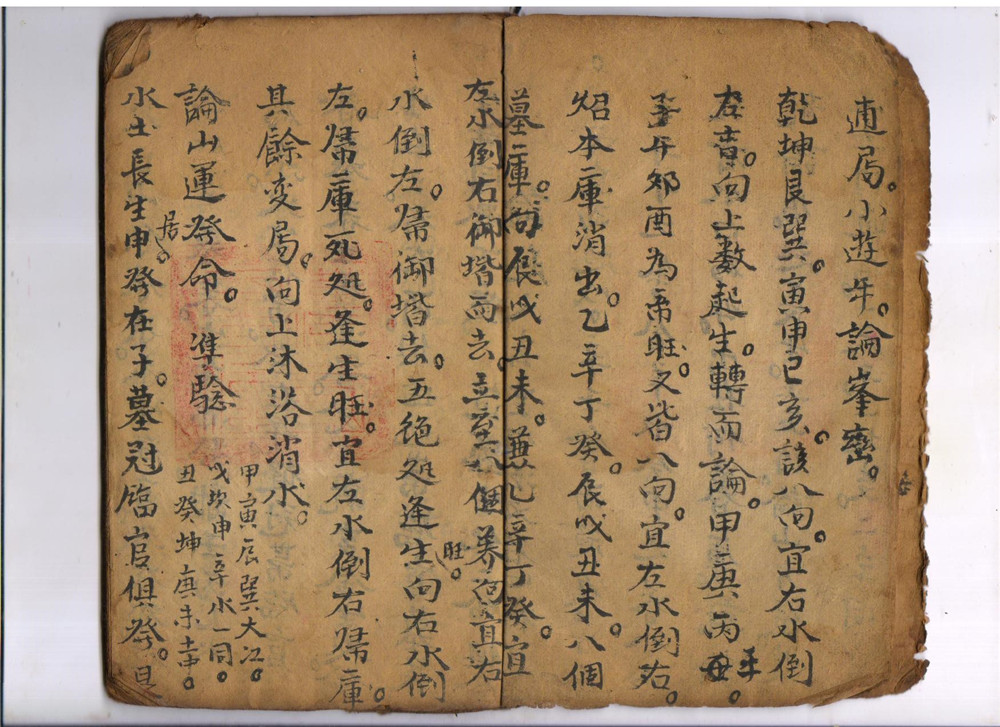 逎局。小遊年。論峯巒。
乾坤艮巽。寅申巳亥。該八向。宜右水倒
左者。向上數起生。轉而論。甲庚丙壬。
子午卯酉為帝旺。又皆八向。宜左水倒右。
炤本庫消出。乙辛丁癸。辰戌丑未。八個
墓庫。向辰戌丑未。兼乙辛丁癸。宜
左水倒右御堦而去。立至八個養向宜右
水倒左。歸御堦去。五絕処逢生旺。向右水倒
左。歸庫死処。逢生旺。宜左水倒右歸庫。
其餘変局。向上沐浴消水。
論山運發命。準驗
甲寅辰巽大江。
戌坎申辛水一同。
丑癸坤庚未土中。
水土長生居申。發在子。墓冠臨官俱發。旦